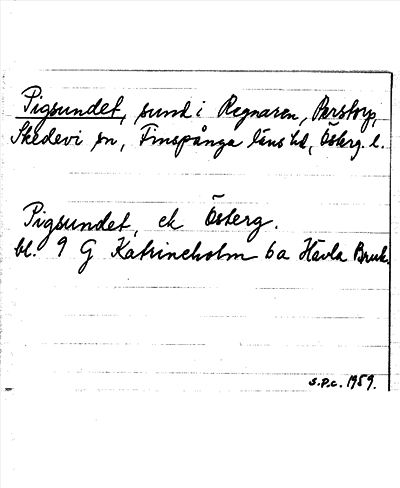 Pigsundet, sund i Regnaren, Perstorp,
Skedevi sn, Finspånga läns hd, Österg. l.
Pigsundet, ek Österg.
bl. 9 G Katrineholm 6a Hävla Bruk.
S.P.C. 1959.